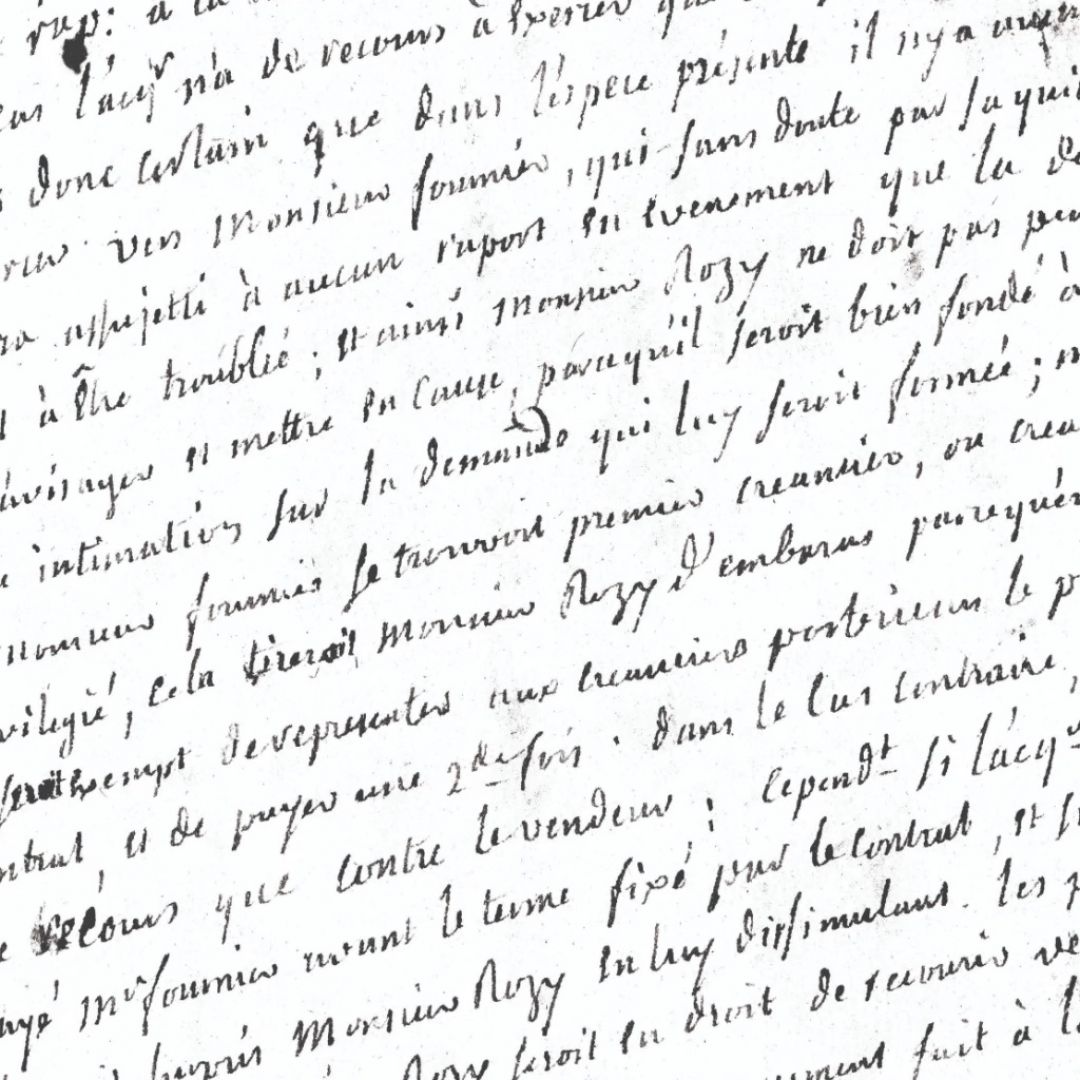 rap: à la
cas l'acqr n'a de recours à exercer
donc certain que dans l'espece présente il n'y a aucun
vers Monsieur fournier, qui sans doute par sa
assujetti à aucun raport en evenement que la
à être troublé; et ainsi Monsieur Rozy ne doit pas
envisager et mettre en cause, parcequ'il seroit bien fondé à
intimation sur la demande qui luy seroit formée;
Monsieur fournier se trouvoit premier creancier, ou
vilegié, cela tireroit Monsieur Rozy d'embaras
seroit exempt de representer aux creanciers posterieurs le
ntrat, et de payer une 2de fois. dans le cas contraire,
recours que contre le vendeur; cependt si l'acqr
ayé Mr fournier avant le terme fixé par le contrat, et
Monsieur Rozy en luy dissimulant les
Rozy seroit en droit de recourir
fait à